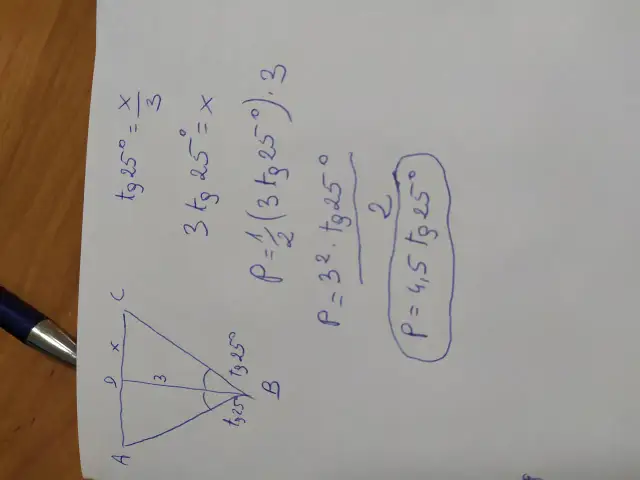 A
D
x
C
3
tg25°
tg25°
B
tg25° = x/3
3tg25° = x
P = 1/2(3tg25°)·3
P = 3²·tg25°/2
P = 4,5tg25°